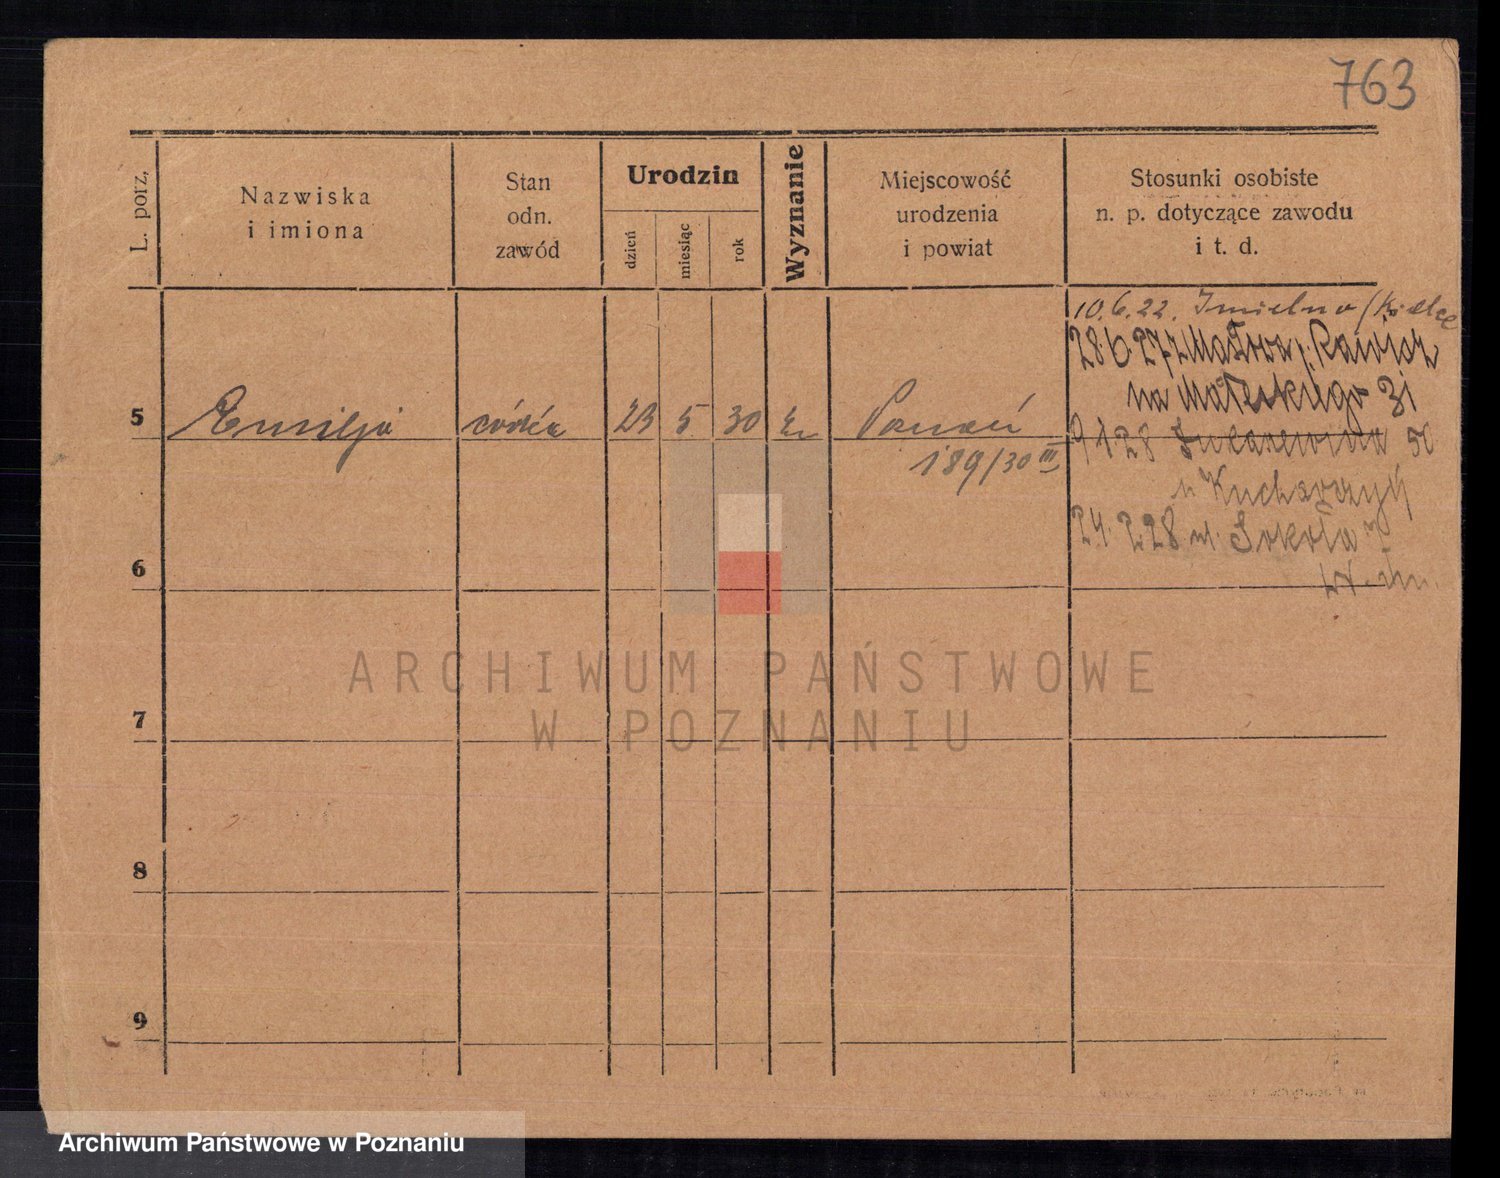 763
L. porz.
Nazwiska
i imiona
Stan
odn.
zawód
Urodzin
dzień
miesiąc
rok
Wyznanie
Miejscowość
urodzenia
i powiat
Stosunki osobiste
n. p. dotyczące zawodu
i t. d.
10.6.22. Imielno /Kielce
28.6.27 z Rawicz
na 31
5 Emilja córka 23 5 30 Poznań
189/30 III
9 1 28 50
u Kucharzyk
24. 2 28 Sokoła
6
7
8
9
ARCHIWUM PAŃSTWOWE
W POZNANIU
Archiwum Państwowe w Poznaniu